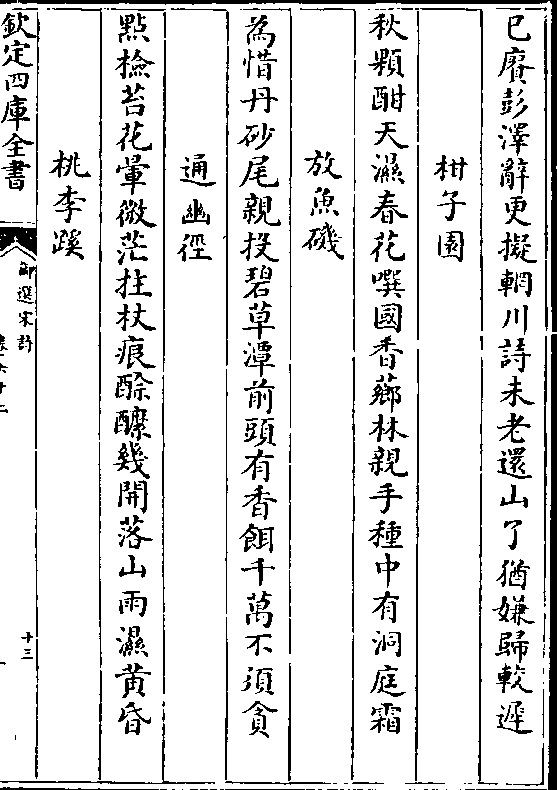 已賡彭澤辭更擬輞川詩未老還山了猶嫌歸較遲
柑子園
秋顆酣天濕春花噀國香薌林親手種中有洞庭霜
放魚磯
為惜丹砂尾親投碧草潭前頭有香餌千萬不須貪
通幽徑
點檢苔花暈微茫拄杖痕酴醾幾開落山雨濕黃昏
桃李蹊
欽定四庫全書
御選宋詩
十三